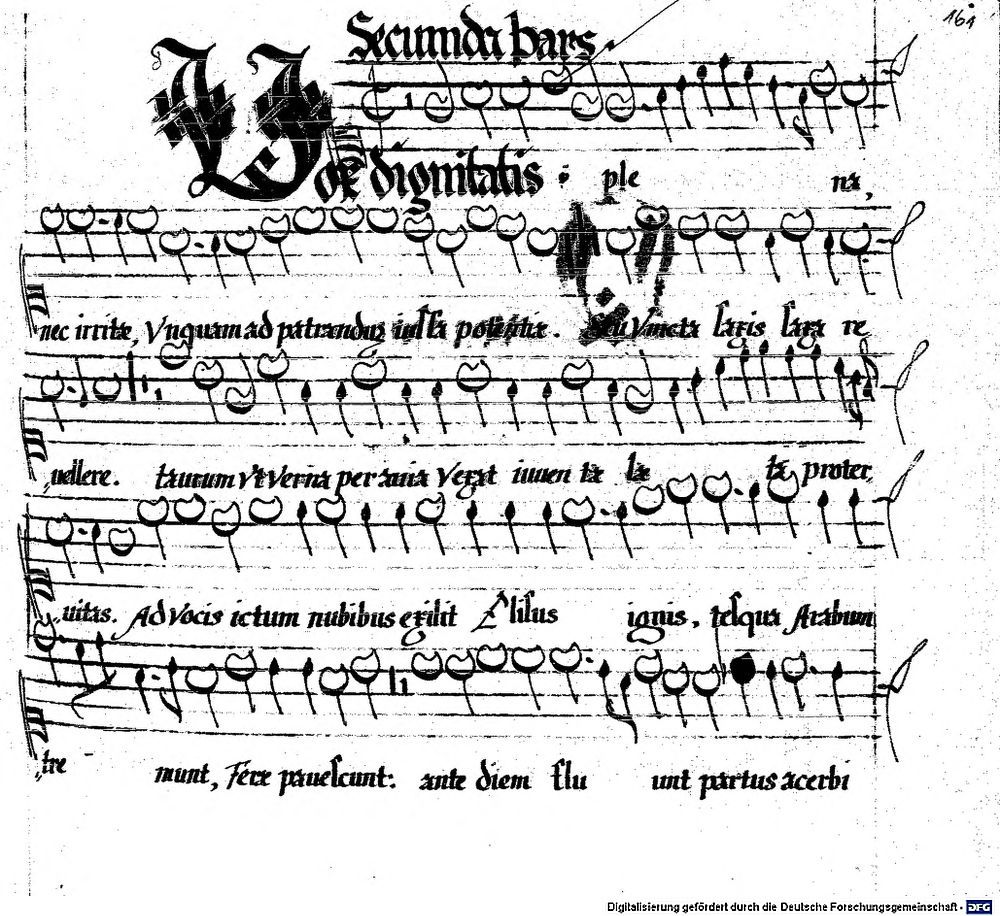 161
Secunda pars.
Vox dignitatis : ple na,
nec irritæ, Vnquam ad patrandum iussa potentiæ. Seu Vincta laxis laxa re
uellere. taurum Vt Verna per Vexat iuuen tæ læ tæ proter,
uitas. Ad Vocis ictum nubibus exilit Elisus ignis, telqua Arabum
tre munt, Feræ pauescunt: ante diem flu unt partus acerbi
Digitalisierung gefördert durch die Deutsche Forschungsgemeinschaft - DFG